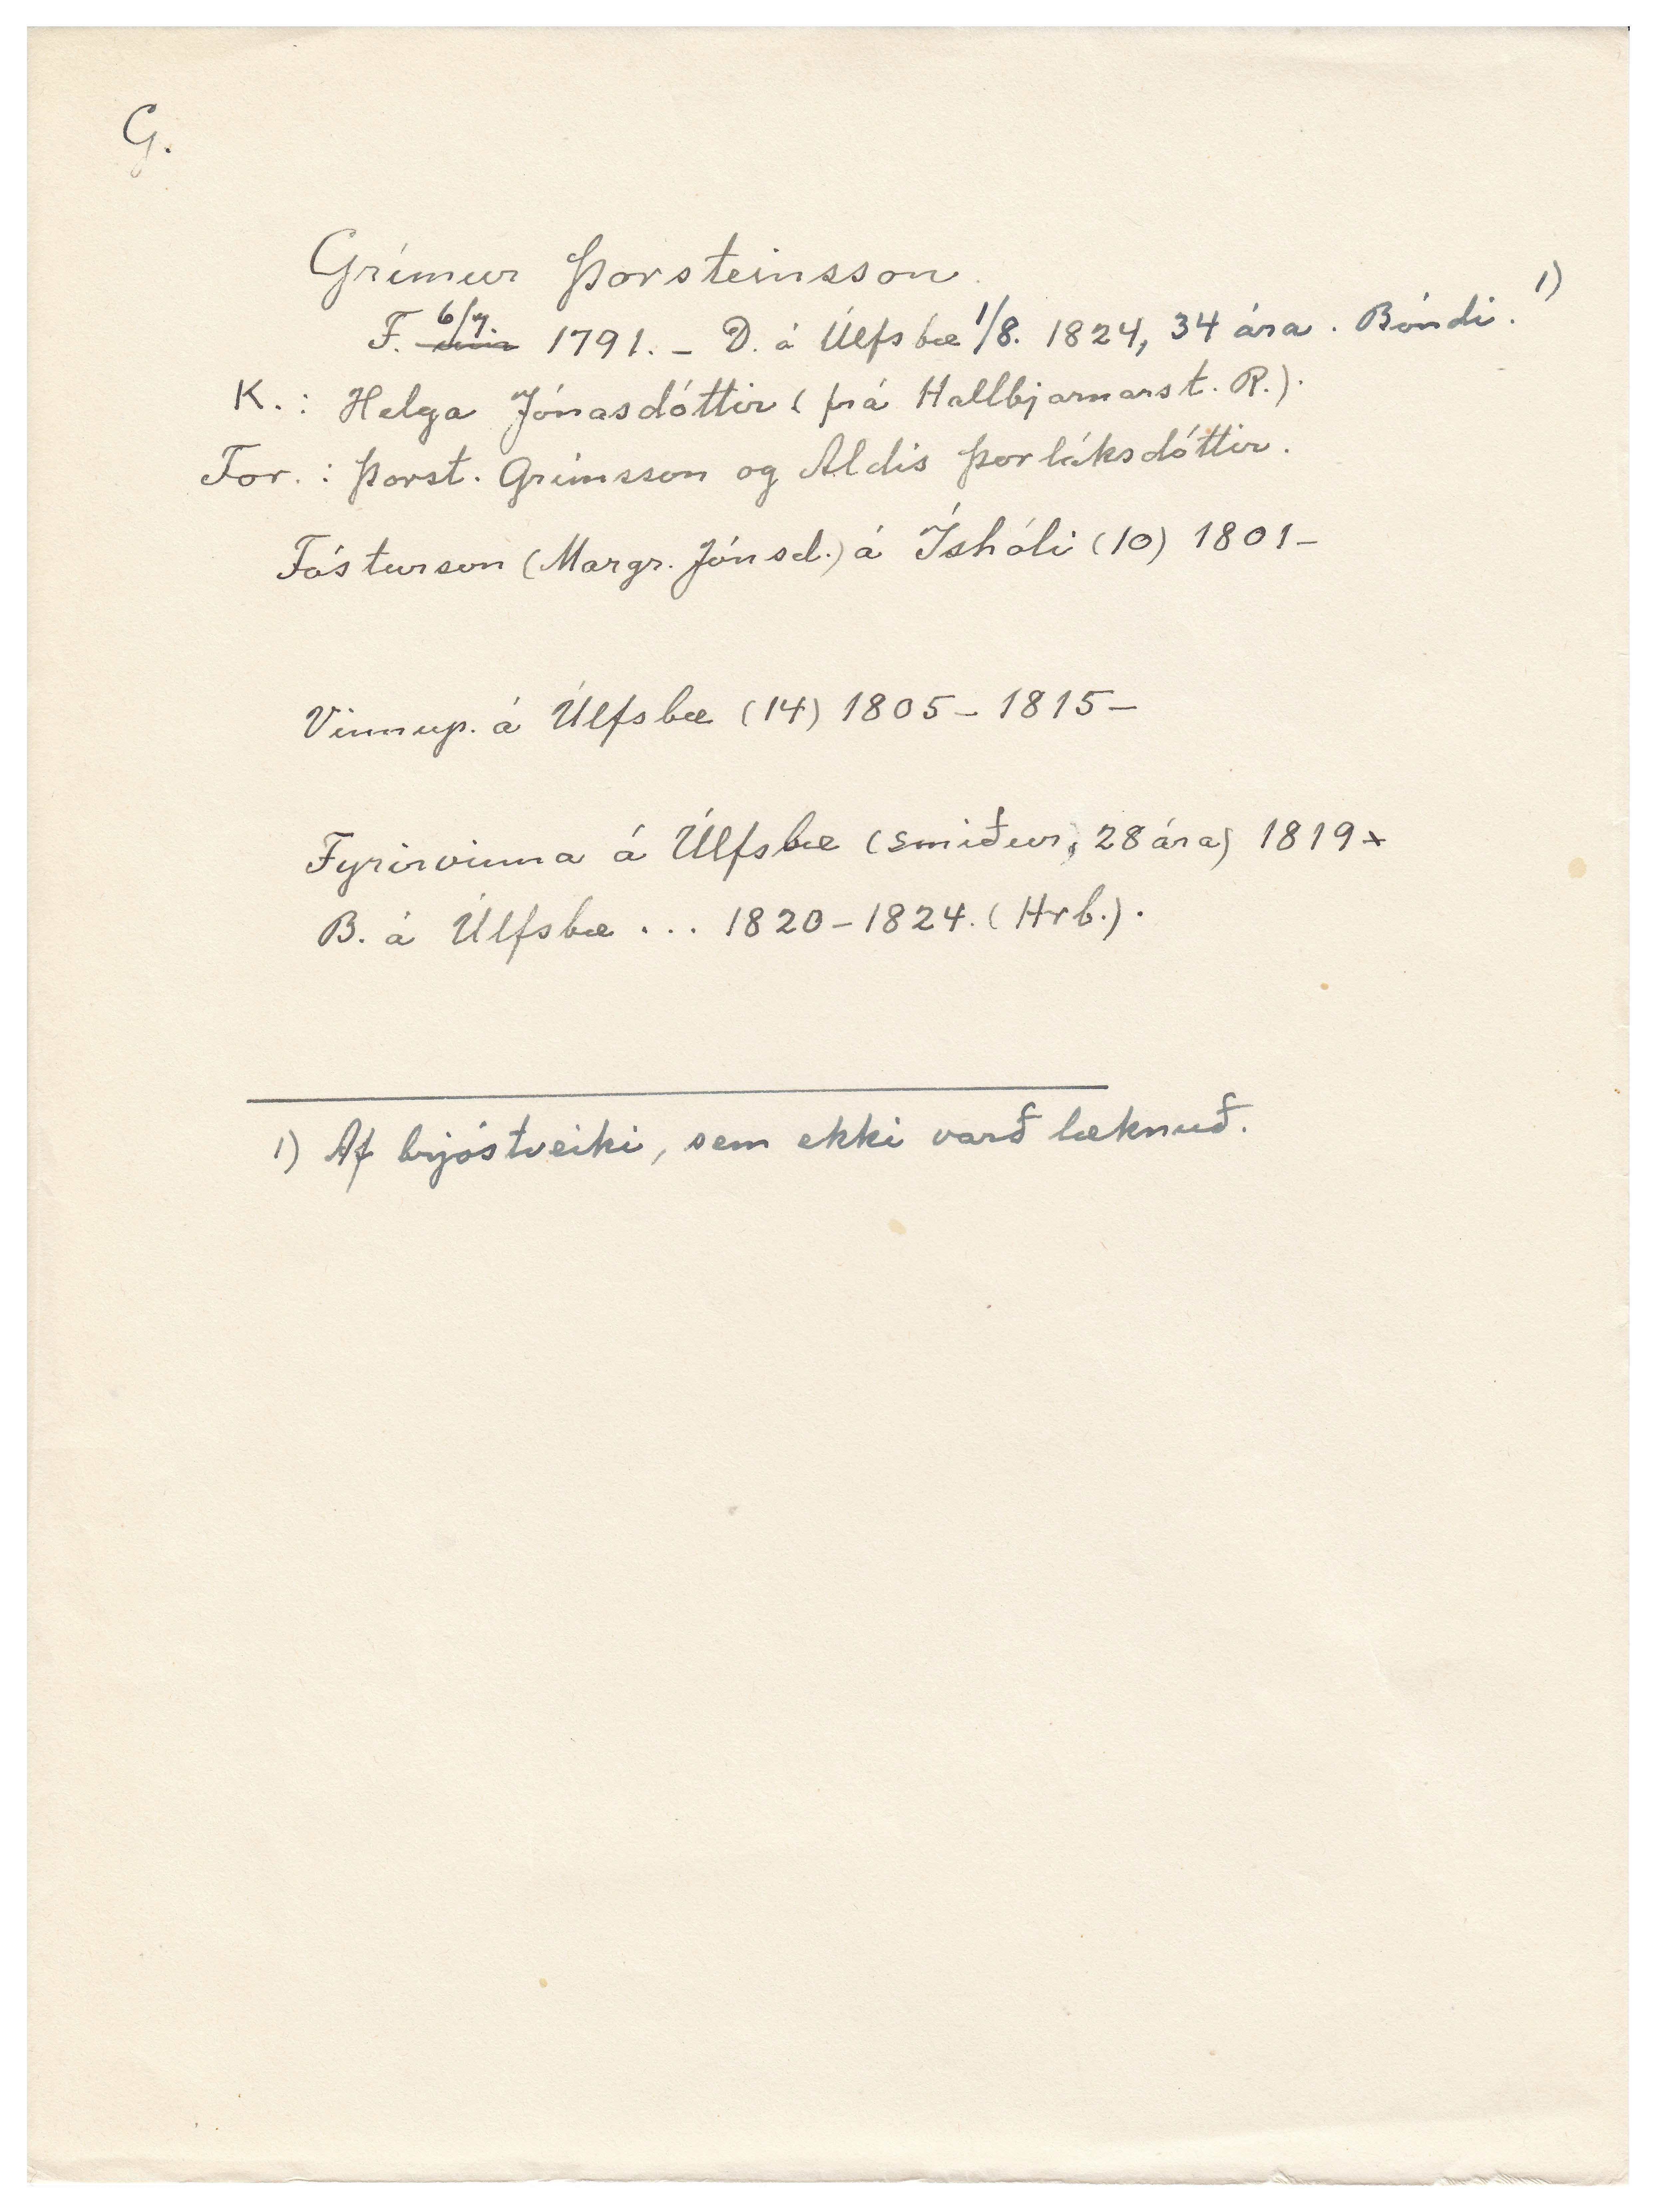 G.
Grímur Þorsteinsson.
F. 6/7. 1791. – D. á Úlfsbæ 1/8. 1824, 34 ára. Bóndi. 1)
K.: Helga Jónasdóttir (frá Hallbjarnarst. R.).
For.: Þorst. Grímsson og Aldís Þorláksdóttir.
Fósturson (Margr. Jónsd.) á Íshóli (10) 1801–
Vinnup. á Úlfsbæ (14) 1805–1815–
Fyrirvinna á Úlfsbæ (smiður, 28 ára) 1819
B. á Úlfsbæ ... 1820–1824. (Hrb.).
1) Af brjóstveiki, sem ekki varð læknuð.